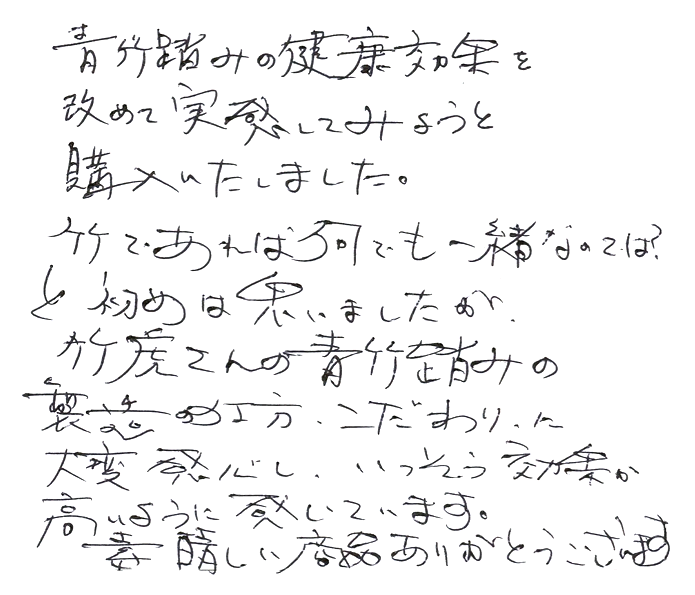 青竹踏みの健康効果を
改めて実感してみようと
購入いたしました。
竹であれば何でも一緒なのでは?
と初めは思いましたが、
竹虎さんの青竹踏みの
製造の仕方、こだわり、に
大変感心し、いっそう効果が
高いように感じています。
素晴しい商品ありがとうございます